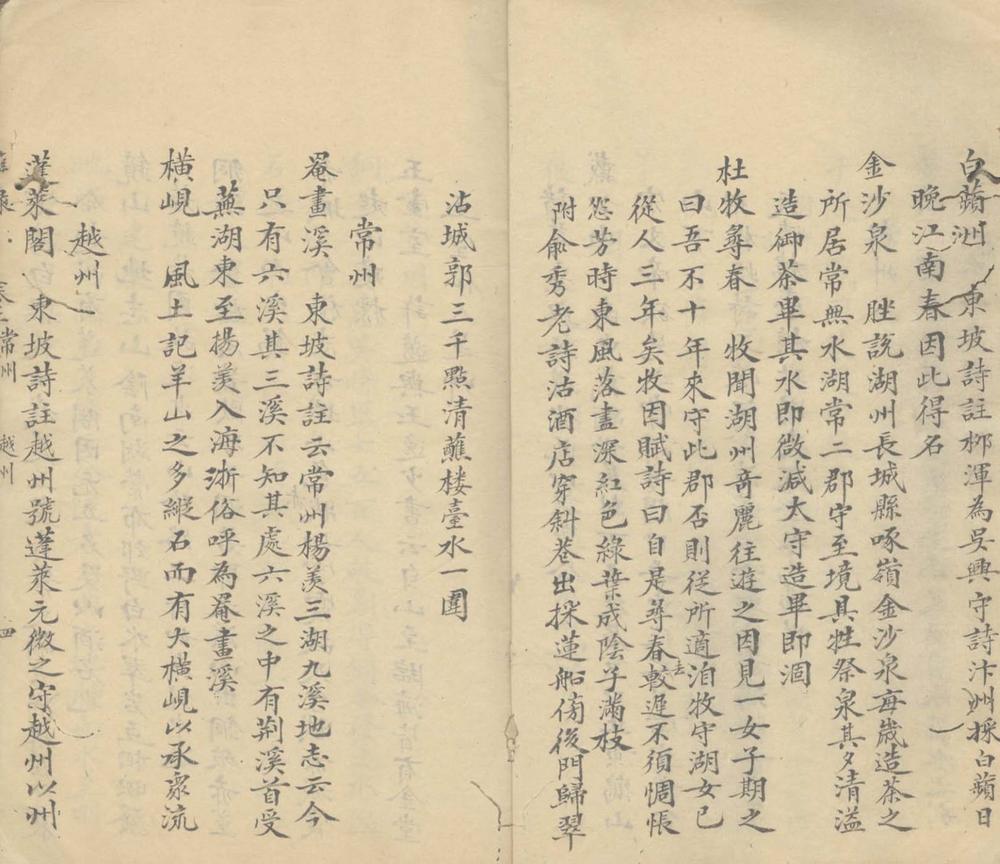 白蘋洲 東坡詩註柳渾為吳興守詩汴州採白蘋日
晚江南春因此得名
金沙泉 脞說湖州長城縣啄嶺金沙泉每歲造茶之
所居常無水湖常二郡守至境具牲祭泉其夕清溢
造御茶畢其水即微減大守造畢即涸
杜牧尋春 牧聞湖州竒麗往遊之因見一女子期之
曰吾不十年來守此郡否則從所適洎牧守湖女已
從人三年矣牧因賦詩曰自是尋春較去遲不須惆悵
怨芳時東風落盡深紅色綠葉成陰子滿枝
附俞秀老詩沽酒店穿斜巷出採蓮船傍後門歸翠
沾城郭三千點清蘸楼臺水一圍
常州
罨畫溪 東坡詩註云常州楊羡三湖九溪地志云今
只有六溪其三溪不知其處六溪之中有荆溪首受
蕪湖東至揚羡入海浙俗呼為罨畫溪
橫峴 風土記羊山之多縱石而有大橫峴以承衆流
越州
蓬萊閣 東坡詩註越州號蓬萊元微之守越州以州
常州 越州 四